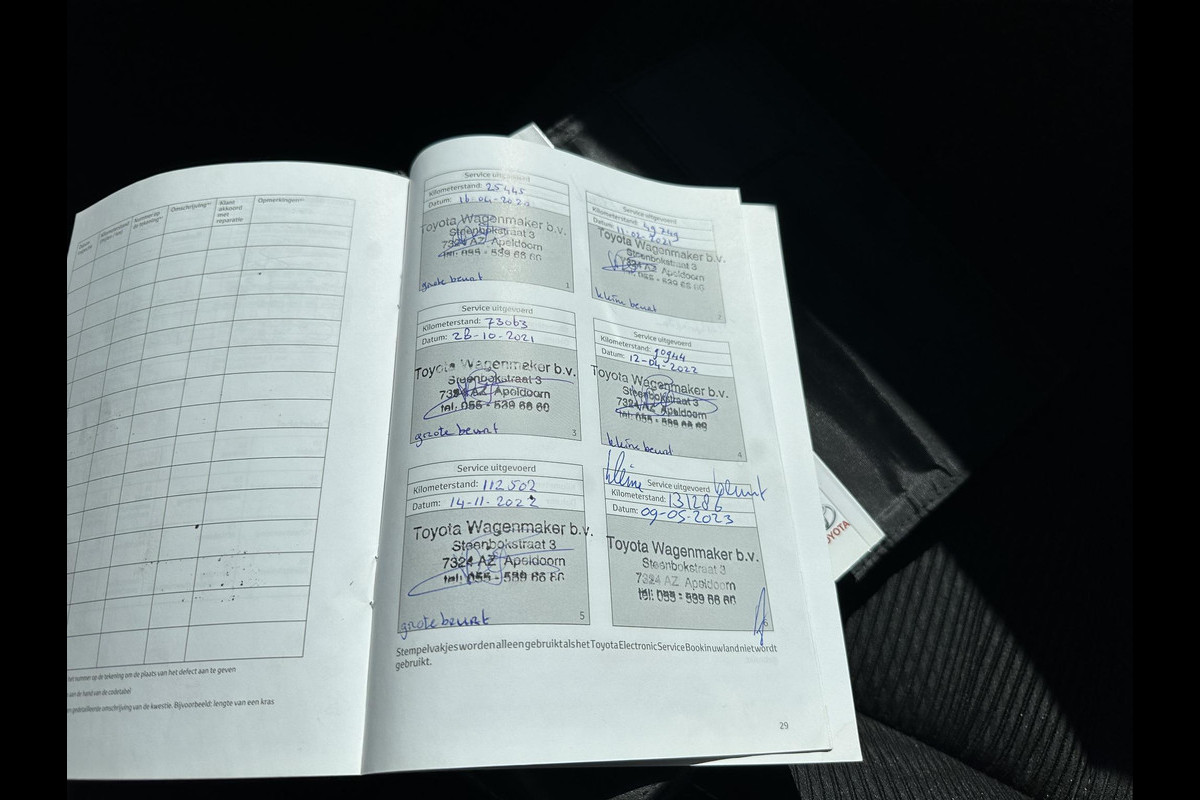 Klant
akkoord
met
reparatie
Nummer op
de tekening*¹
Omschrijving*²
Opmerkingen*³
het nummer op de tekening om de plaats van het defect aan te geven
aan de hand van de codetabel
gedetailleerde omschrijving van de kwestie. Bijvoorbeeld: lengte van een kras
Service uitgevoerd
Kilometerstand: 25445
Datum: 16-04-2020
Toyota Wagenmaker b.v.
Steenbokstraat 3
7324 AZ Apeldoorn
tel: 055 - 539 66 60
grote beurt
1
Service uitgevoerd
Kilometerstand: 49749
Datum: 11-02-2021
Toyota Wagenmaker b.v.
Steenbokstraat 3
7324 AZ Apeldoorn
tel: 055 - 539 66 60
kleine beurt
2
Service uitgevoerd
Kilometerstand: 73063
Datum: 28-10-2021
Toyota Wagenmaker b.v.
Steenbokstraat 3
7324 AZ Apeldoorn
tel: 055 - 539 66 60
grote beurt
3
Service uitgevoerd
Kilometerstand: 90944
Datum: 12-04-2022
Toyota Wagenmaker b.v.
Steenbokstraat 3
7324 AZ Apeldoorn
tel: 055 - 539 66 60
kleine beurt
4
Service uitgevoerd
Kilometerstand: 112502
Datum: 14-11-2022
Toyota Wagenmaker b.v.
Steenbokstraat 3
7324 AZ Apeldoorn
tel: 055 - 539 66 60
grote beurt
5
kleine Service uitgevoerd beurt
Kilometerstand: 131286
Datum: 09-05-2023
Toyota Wagenmaker b.v.
Steenbokstraat 3
7324 AZ Apeldoorn
tel: 055 - 539 66 60
6
Stempelvakjes worden alleen gebruikt als het Toyota Electronic Service Book in uw land niet wordt
gebruikt.
29
TOYOTA